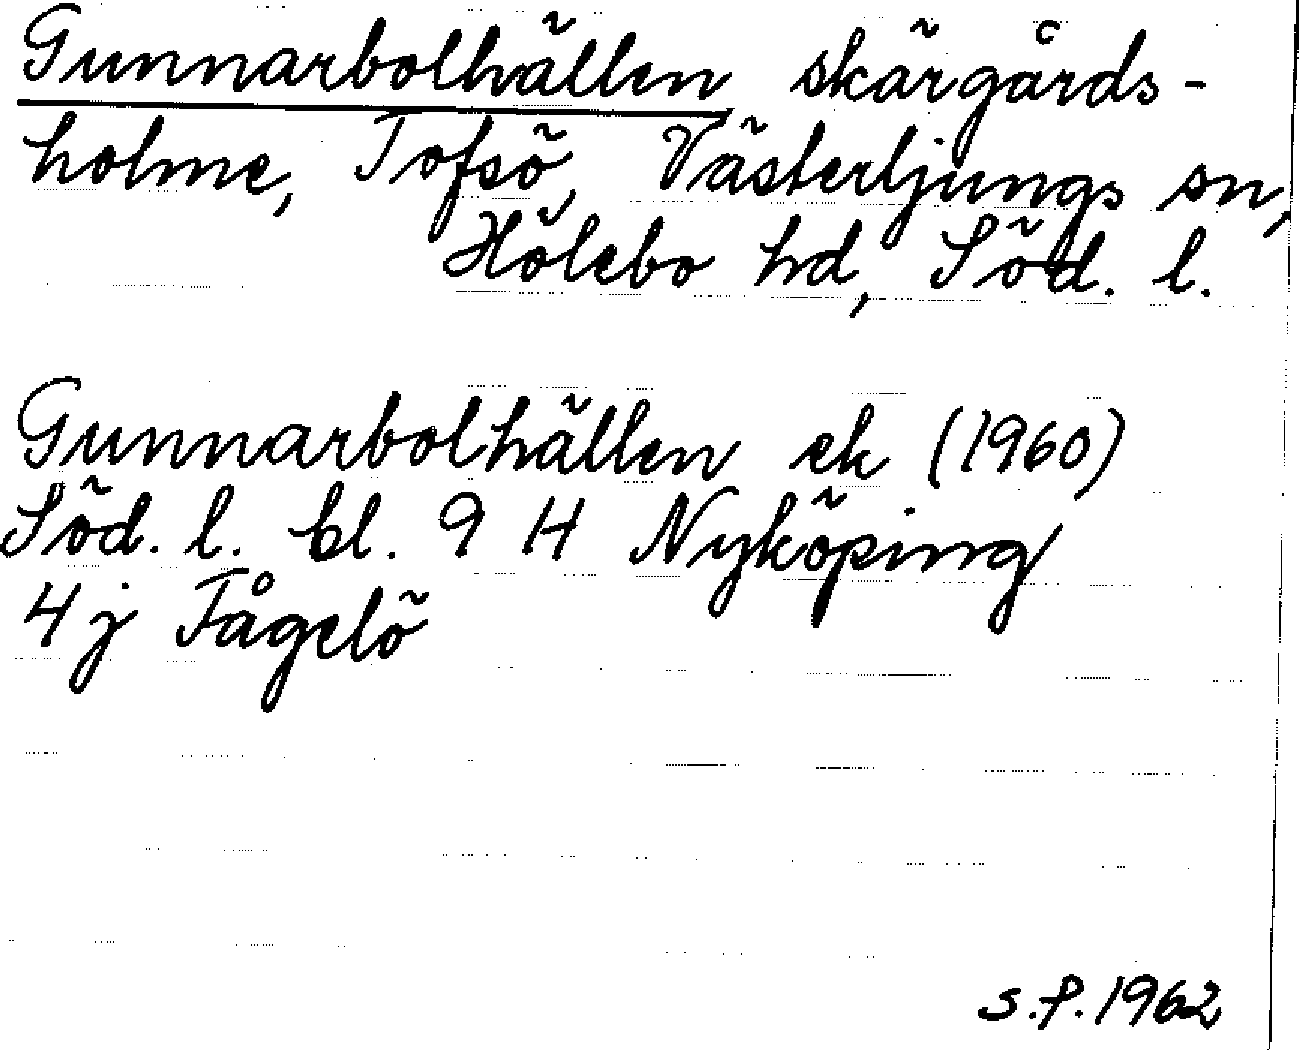 Gunnarbolhällen skärgårds-
holme, Tofsö, Västerljungs sn,
Hölebo hd, Söd. l.
Gunnarbolhällen ek (1960)
Söd. l. bl. 9 H Nyköping
4 j Fågelö
s.f. 1962